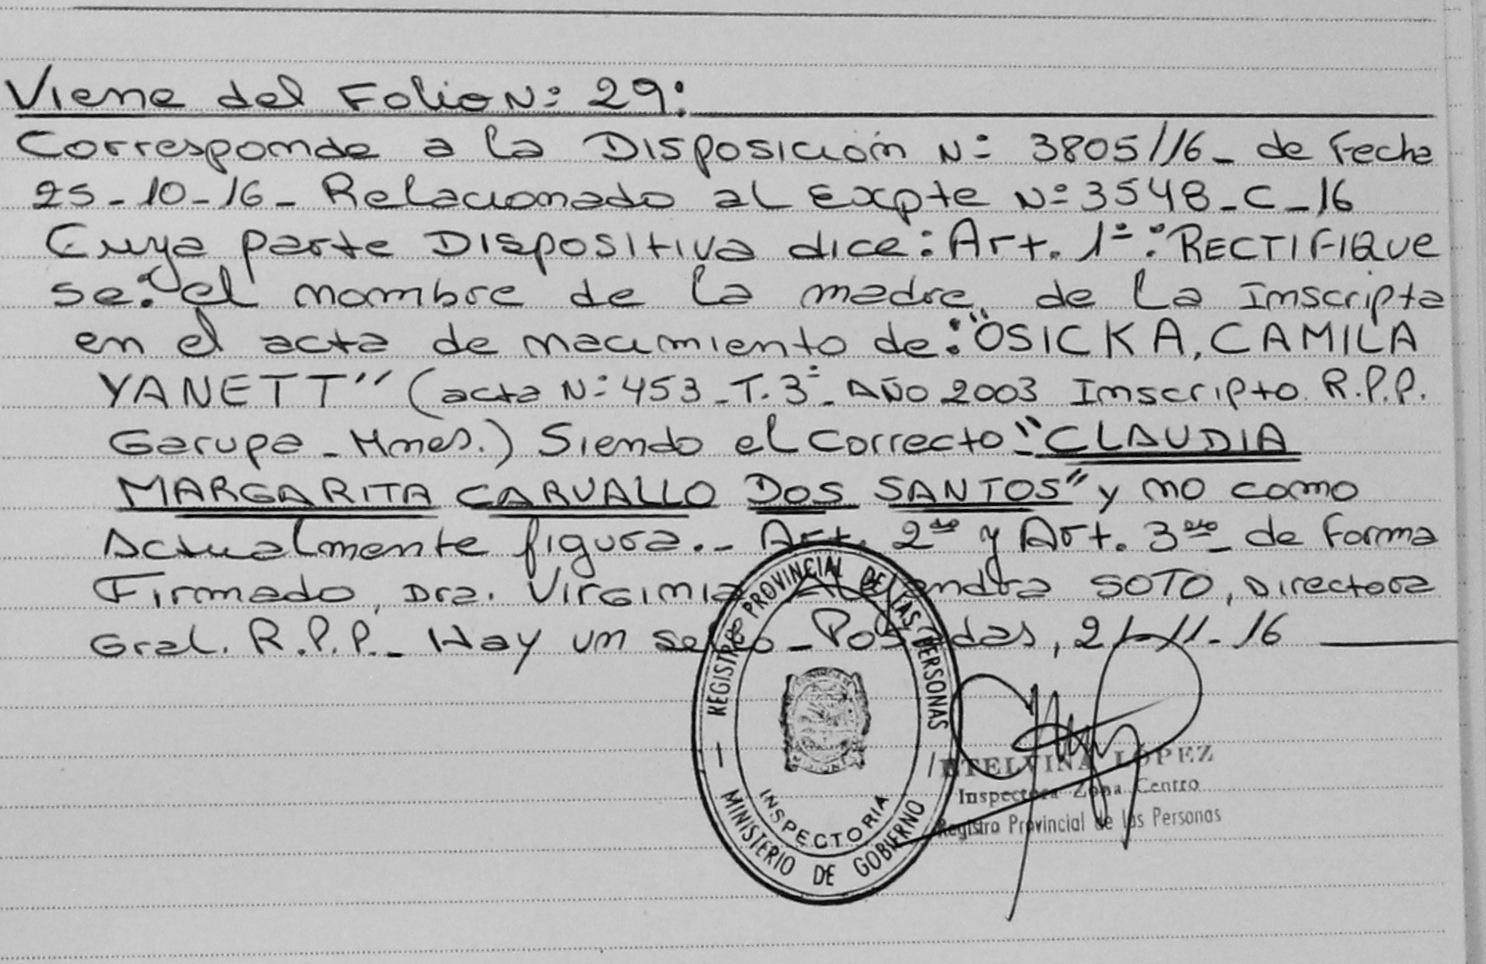 Viene del Folio Nº 29:
Corresponde a la Disposición Nº 3805/16_ de Fecha
25-10-16_ Relacionado al Expte Nº 3548_C_16
Cuya parte Dispositiva dice: Art. 1º: RECTIFIQUE
se: el nombre de la madre de la Inscripta
en el acta de nacimiento de: "OSICKA, CAMILA
YANETT" (acta Nº 453_T.3º_ AÑO 2003 Inscripto R.P.P.
Garupa_Mnes.) Siendo el correcto: "CLAUDIA
MARGARITA CARVALLO DOS SANTOS" y no como
Actualmente figura._ Art. 2do y Art. 3ero_ de Forma
Firmado, Dra. Virginia Alejandra SOTO, Directora
Gral. R.P.P._ Hay un sello_Posadas, 21-11-16
REGISTRO PROVINCIAL DE LAS PERSONAS
INSPECTORIA
MINISTERIO DE GOBIERNO
ETELVINA LÓPEZ
Inspectora Zona Centro
Registro Provincial de las Personas